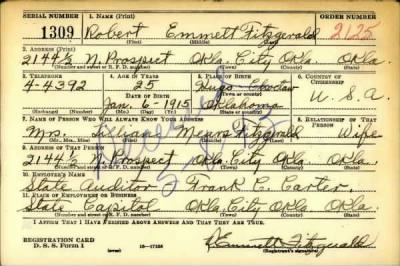 SERIAL NUMBER 1. NAME (Print) ORDER NUMBER
1309 Robert Emmett Fitzgerald 2125
(First) (Middle) (Last)
2. ADDRESS (Print)
2144½ N. Prospect Okla. City Okla. Okla.
(Number and street or R. F. D. number) (Town) (County) (State)
3. TELEPHONE 4. AGE IN YEARS 5. PLACE OF BIRTH 6. COUNTRY OF CITIZENSHIP
4-4392 25 Hugo Choctaw
DATE OF BIRTH U.S.A.
Jan. 6-1915 Oklahoma
7. NAME OF PERSON WHO WILL ALWAYS KNOW YOUR ADDRESS 8. RELATIONSHIP OF THAT PERSON
Mrs. Lillian Fitzgerald Wife
(Mr., Mrs., Miss) (First) (Middle) (Last)
9. ADDRESS OF THAT PERSON
2144½ N. Prospect Okla. City Okla. Okla.
(Number and street or R. F. D. number) (Town) (County) (State)
10. EMPLOYER'S NAME
State Auditor Frank C. Carter
11. PLACE OF EMPLOYMENT OR BUSINESS
State Capitol Okla. City Okla. Okla.
(Number and street or R. F. D. number) (Town) (County) (State)
I AFFIRM THAT I HAVE VERIFIED ABOVE ANSWERS AND THAT THEY ARE TRUE.
REGISTRATION CARD
D. S. S. Form 1
16-17105 R. Emmett Fitzgerald
(Registrant's signature)